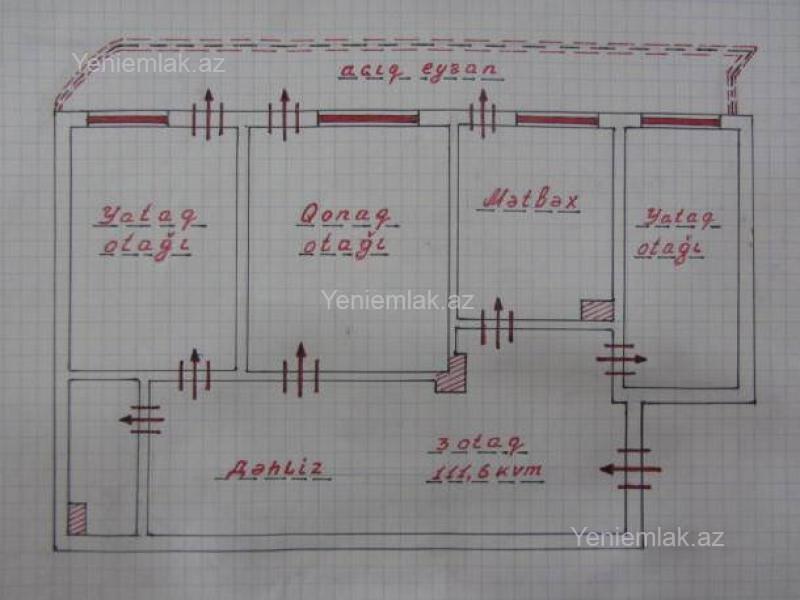 Yeniemlak.az
açıq eyvan
Yataq
otağı
Qonaq
otağı
Mətbəx
Yataq
otağı
Yeniemlak.az
Dəhliz
3 otaq
111,6 kvm
Yeniemlak.az